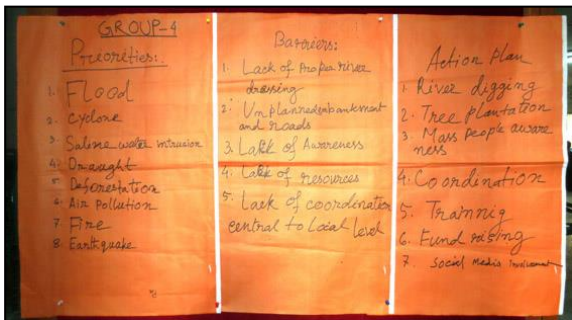 GROUP-4
Preorities:
1. Flood
2. Cyclone
3. Saline water intrusion
4. Draught
5. Deforestation
6. Air pollution
7 Fire
8 Earthquake
Barriers:
1. Lack of Proper river
dressing
2. Unplanned enbankment
and roads
3. Lack of Awareness
4. Lack of resources
5. Lack of coordination
central to local level
Action Plan
1. River digging
2. Tree plantation
3. Mass people aware
ness
4. Coordination
5. Trannig
6. Fund rising
7. Social Media Involvement